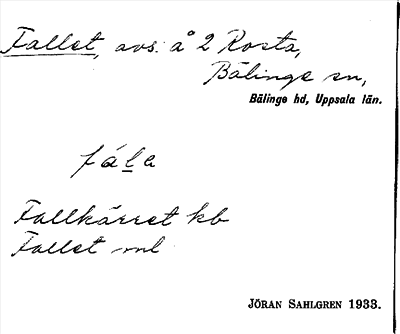 Fallet, avs. å 2 Rosta,
Bälinge sn,
Bälinge hd, Uppsala län.
fála
Fallkärret kb
Fallet ml
JÖRAN SAHLGREN 1933.